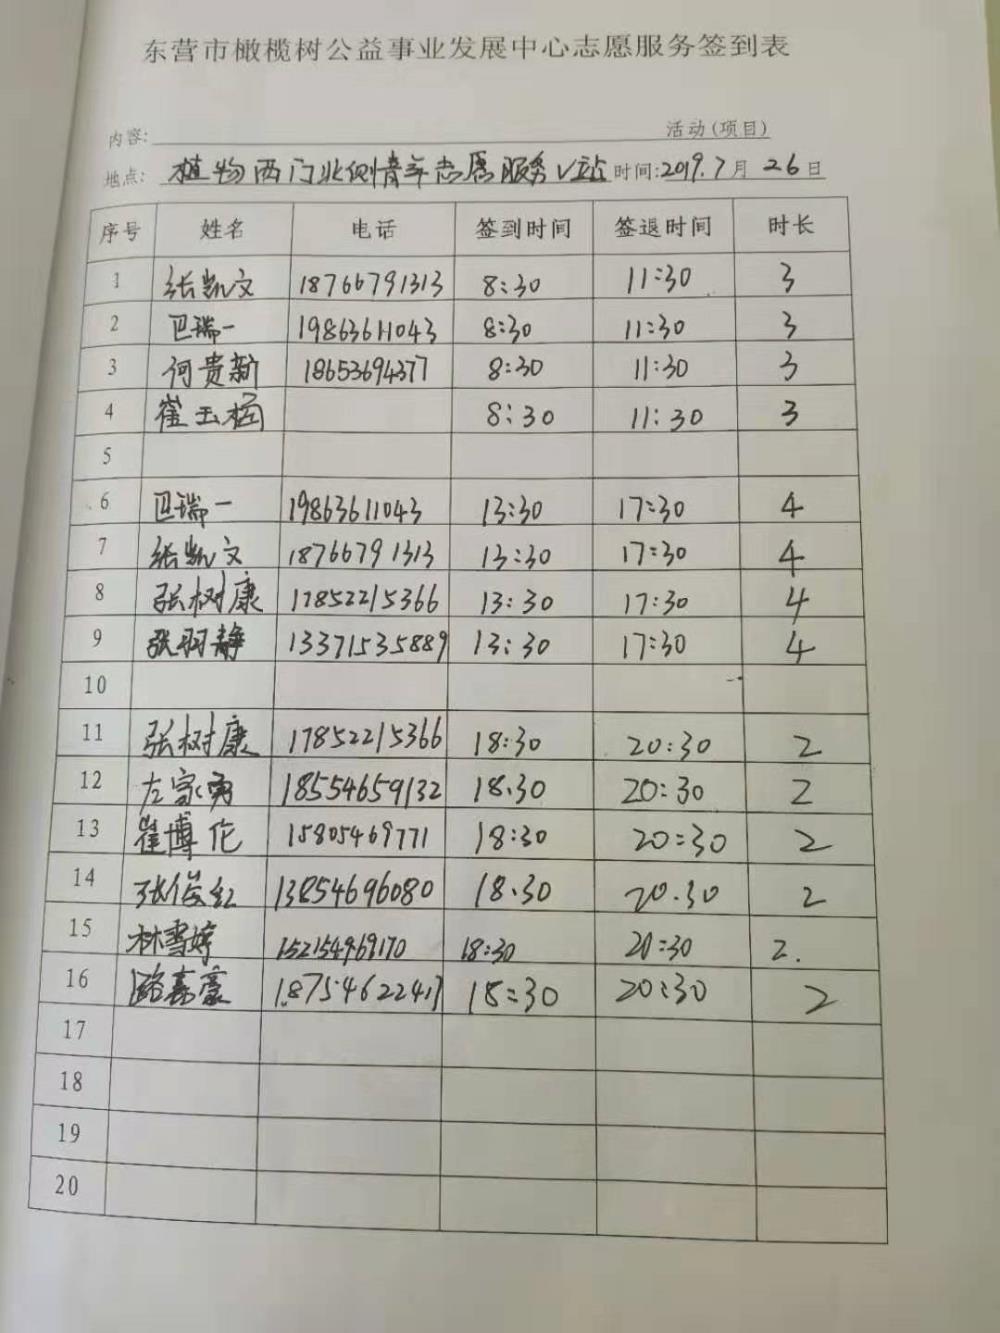 东营市橄榄树公益事业发展中心志愿服务签到表
内容: 活动(项目)
地点: 植物西门北侧青年志愿服务V站 时间:2019.7月 26日
序号 姓名 电话 签到时间 签退时间 时长
1 张凯文 18766791313 8:30 11:30 3
2 巴瑞一 19863611043 8:30 11:30 3
3 何贵新 18653694377 8:30 11:30 3
4 崔玉 8:30 11:30 3
5
6 巴瑞一 19863611043 13:30 17:30 4
7 张凯文 18766791313 13:30 17:30 4
8 张树康 17852215366 13:30 17:30 4
9 张羽静 13371535889 13:30 17:30 4
10
11 张树康 17852215366 18:30 20:30 2
12 左家勇 18554659132 18.30 20:30 2
13 崔博伦 15805469771 18:30 20:30 2
14 张俊红 13854696080 18.30 20.30 2
15 林雪婷 152154969170 18:30 20:30 2.
16 路嘉豪 18754622417 18:30 20:30 2
17
18
19
20